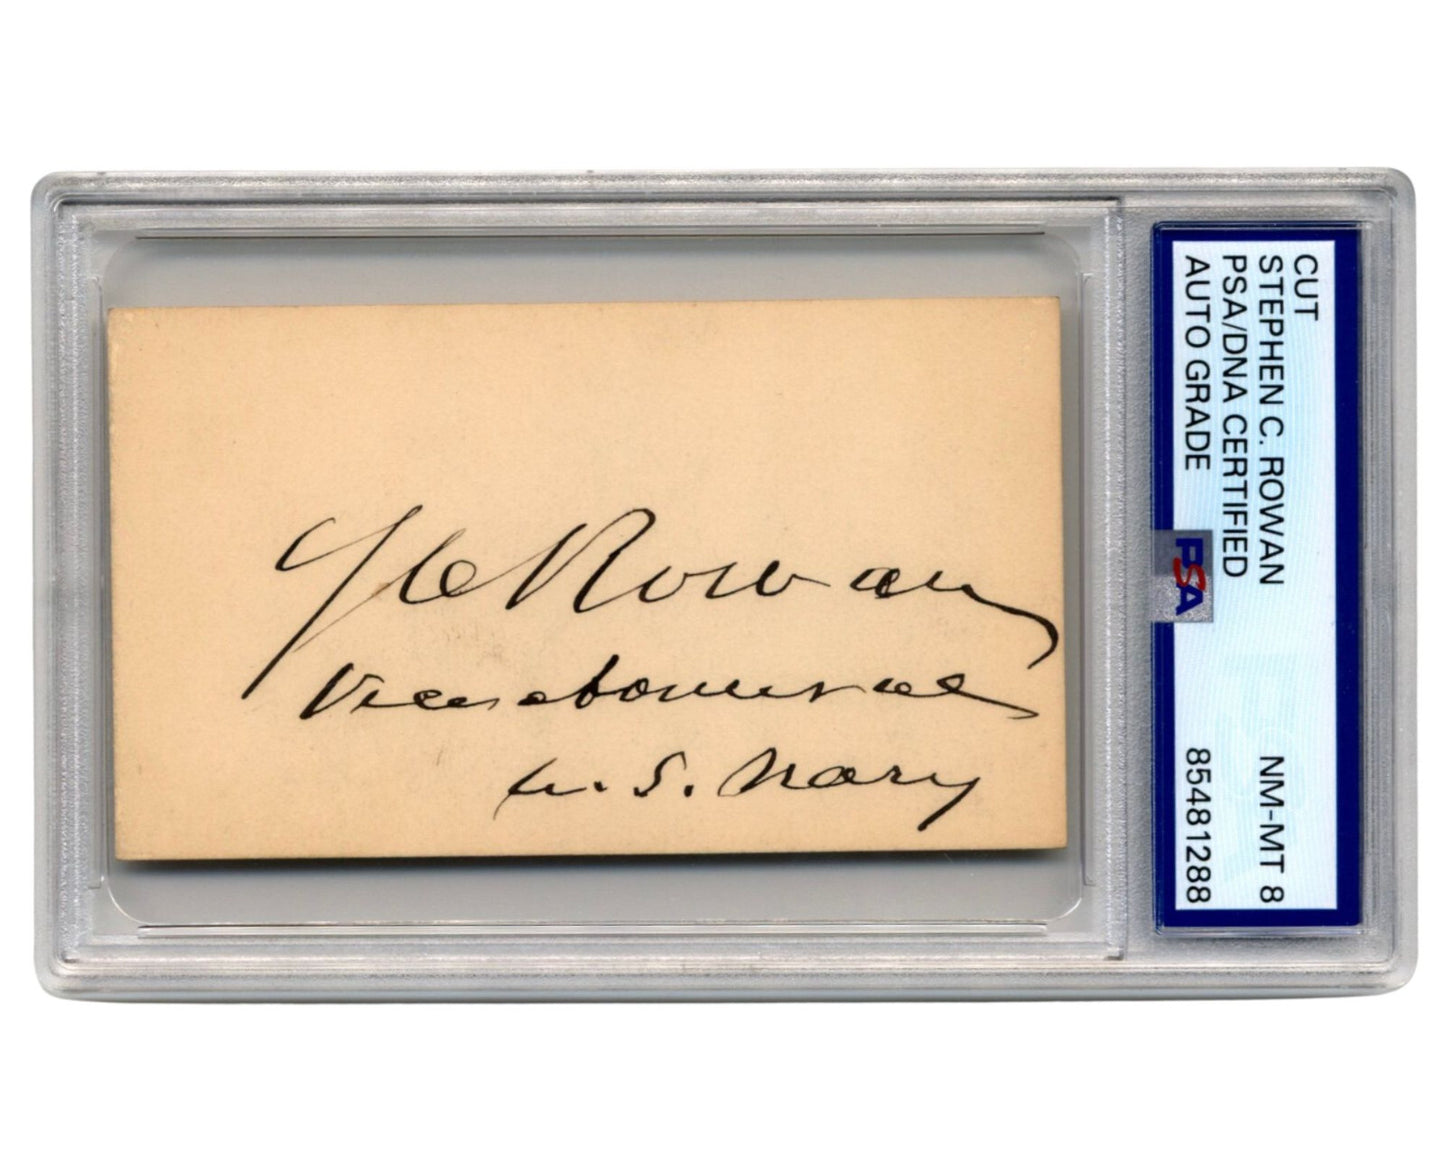 S C Rowan
Vice admiral
U. S. Navy
CUT
STEPHEN C. ROWAN
PSA/DNA CERTIFIED
AUTO GRADE
NM-MT 8
85481288
PSA